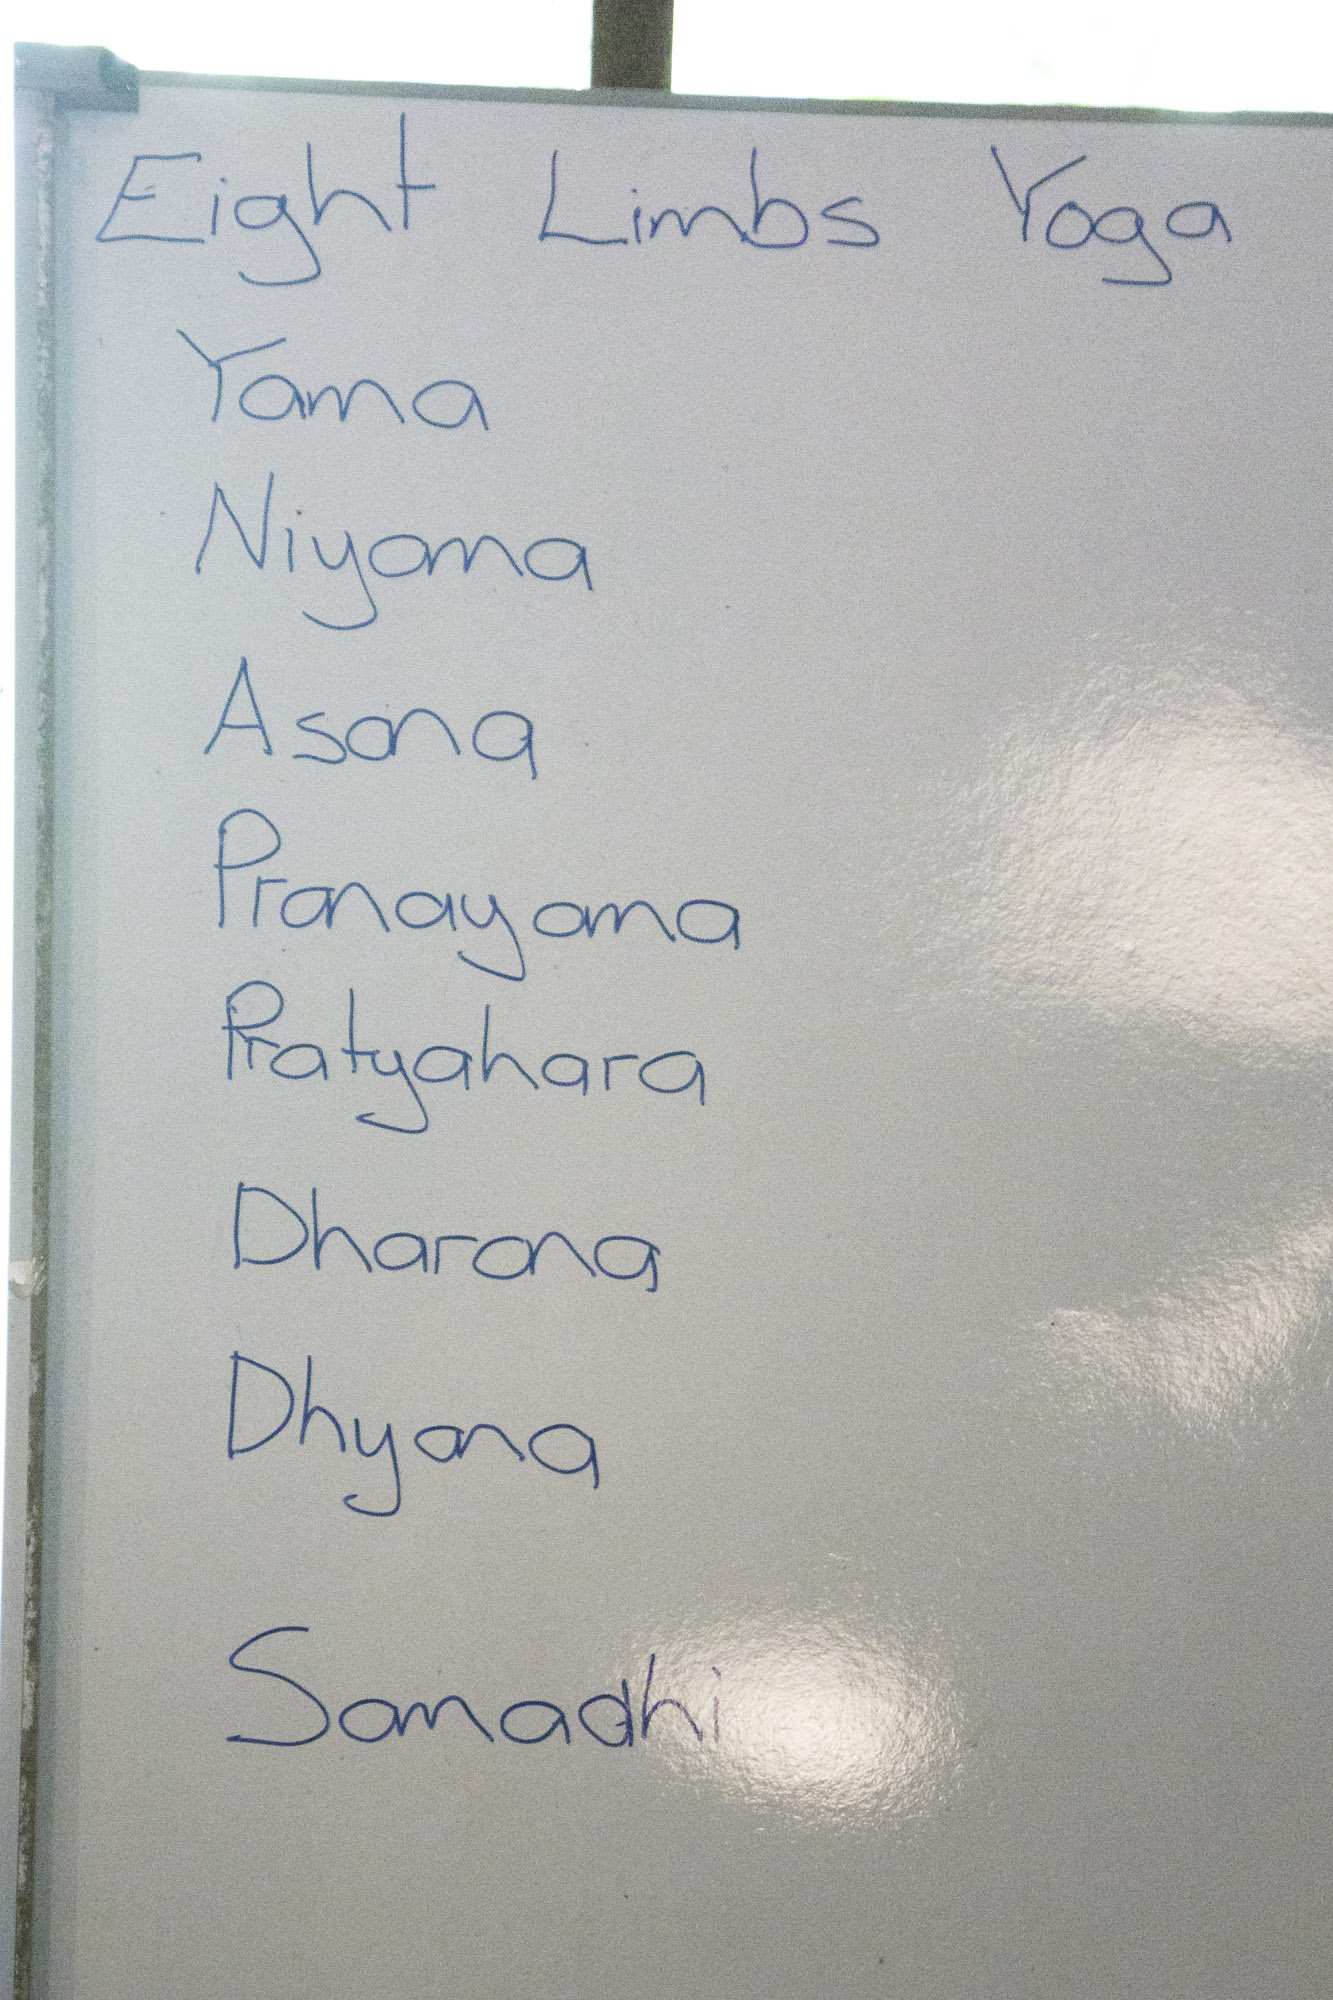 Eight Limbs Yoga
Yama
Niyama
Asana
Pranayama
Pratyahara
Dharana
Dhyana
Samadhi